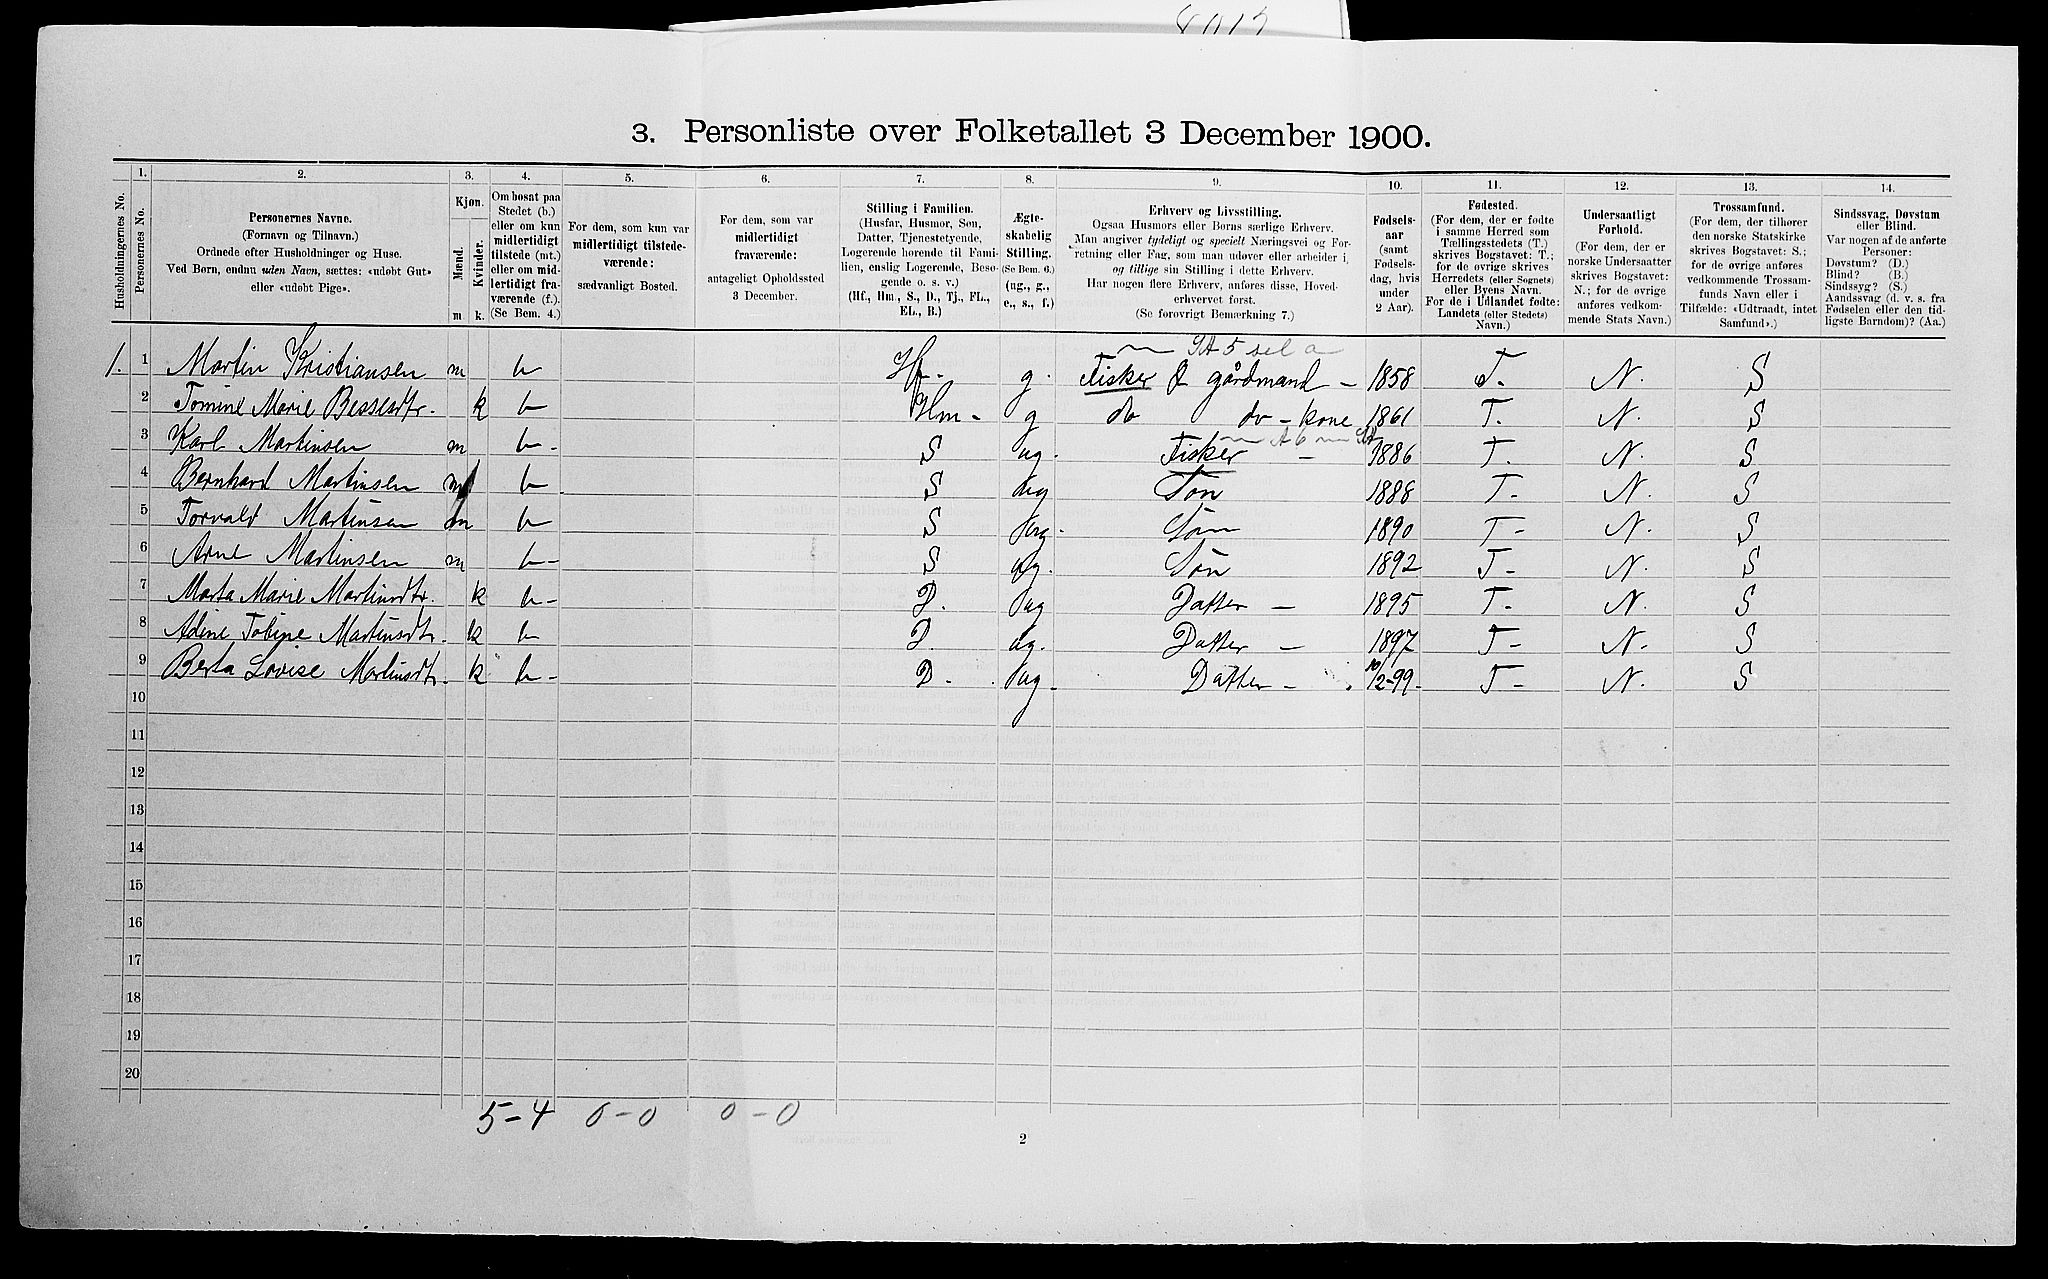 3. Personliste over Folketallet 3 December 1900.
1. 2. 3. 4. 5. 6. 7. 8. 9. 10. 11. 12. 13. 14.
Husholdningernes No.
Personernes No.
Personernes Navne.
(Fornavn og Tilnavn.)
Ordnede efter Husholdninger og Huse.
Ved Børn, endnu uden Navn, sættes: «udøbt Gut»
eller «udøbt Pige».
Kjøn.
Mænd.
Kvinder.
m k.
Om bosat paa
Stedet (b.)
eller om kun
midlertidigt
tilstede (mt.)
eller om mid-
lertidigt fra-
værende (f.).
(Se Bem. 4.)
For dem, som kun var
midlertidigt tilstede-
værende:
sædvanligt Bosted.
For dem, som var
midlertidigt
fraværende:
antageligt Opholdssted
3 December.
Stilling i Familien.
(Husfar, Husmor, Søn,
Datter, Tjenestetyende,
Logerende hørende til Fami-
lien, enslig Logerende, Besø-
gende o. s. v.)
(Hf., Hm., S., D., Tj., FL.,
EL., B.)
Ægte-
skabelig
Stilling.
(Se Bem. 6.)
(ug., g.,
e., s., f.)
Erhverv og Livsstilling.
Ogsaa Husmors eller Børns særlige Erhverv.
Man angiver tydeligt og specielt Næringsvei og For-
retning eller Fag, som man udøver eller arbeider i,
og tillige sin Stilling i dette Erhverv.
Har nogen flere Erhverv, anføres disse, Hoved-
erhvervet først.
(Se forøvrigt Bemærkning 7.)
Fødsels-
aar
(samt
Fødsels-
dag, hvis
under
2 Aar).
Fødested.
(For dem, der er fødte
i samme Herred som
Tællingsstedets (T.)
skrives Bogstavet: T.;
for de øvrige skrives
Herredets (eller Sognets)
eller Byens Navn.
For de i Udlandet fødte:
Landets (eller Stedets)
Navn.)
Undersaatligt
Forhold.
(For dem, der er
norske Undersaatter
skrives Bogstavet:
N.; for de øvrige
anføres vedkom-
mende Stats Navn.)
Trossamfund.
(For dem, der tilhører
den norske Statskirke
skrives Bogstavet: S.;
for de øvrige anføres
vedkommende Trossam-
funds Navn eller i
Tilfælde: «Udtraadt, intet
Samfund».)
Sindssvag, Døvstum
eller Blind.
Var nogen af de anførte
Personer:
Døvstum? (D.)
Blind? (B.)
Sindssyg? (S.)
Aandssvag (d. v. s. fra
Fødselen eller den tid-
ligste Barndom)? (Aa.)
1. 1 Martin Kristiansen m b Hf. g. Fisker & gårdmand - 1858 T. N. S
2 Tomine Marie Bessesdtr. k b Hm - g do do - kone 1861 T. N. S
3 Karl Martinsen m b - S ug. Fisker - 1886 T. N. S
4 Bernhard Martinsen m b S ug Søn 1888 T - N. S
5 Torvald Martinsen m b S ug. Søn 1890 T - N. S
6 Arne Martinsen m b - S ug. Søn 1892 T - N. S
7 Marta Marie Martinsdtr. k b - D. ug Datter - 1895 T - N. S
8 Adine Tobine Martinsdtr. k b D. ug. Datter - 1897 T - N. S
9 Berta Lovise Martinsdtr. k b - D - ug - Datter - 10/2-99 - T - N. S
10
11
12
13
14
15
16
17
18
19
20
5-4 0-0 0-0
2